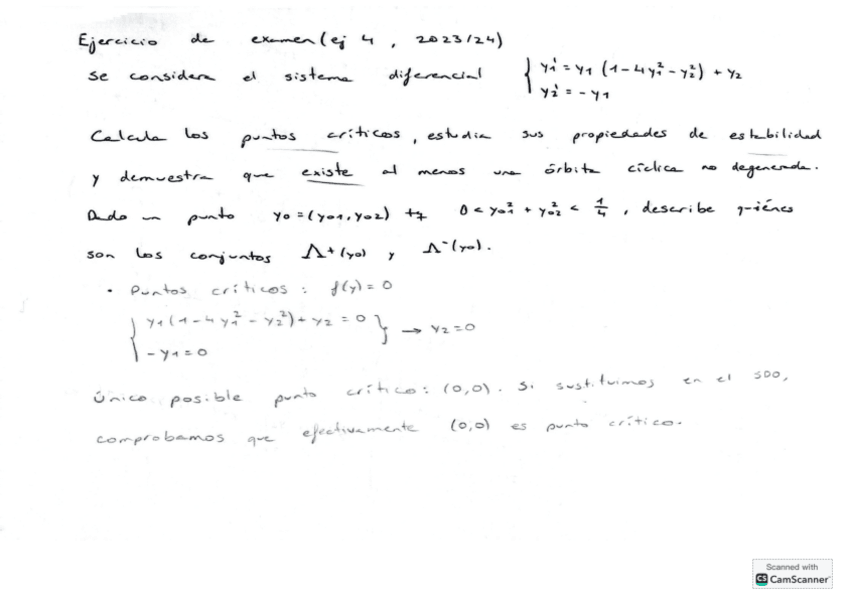 Ejercicio de examen (ej 4, 2023/24)
Se considera el sistema diferencial { y₁' = y₁ (1 - 4y₁² - y₂²) + y₂
y₂' = - y₁
Calcula los puntos críticos, estudia sus propiedades de estabilidad
y demuestra que existe al menos una órbita cíclica no degenerada.
Dado un punto y₀ = (y₀₁, y₀₂) tq 0 < y₀₁² + y₀₂² < 1/4, describe quiénes
son los conjuntos Λ⁺(y₀) y Λ⁻(y₀).
• Puntos críticos: f(y) = 0
{ y₁(1 - 4y₁² - y₂²) + y₂ = 0 } → y₂ = 0
- y₁ = 0
Único posible punto crítico: (0,0). Si sustituimos en el SDO,
comprobamos que efectivamente (0,0) es punto crítico.
Scanned with
CS CamScanner